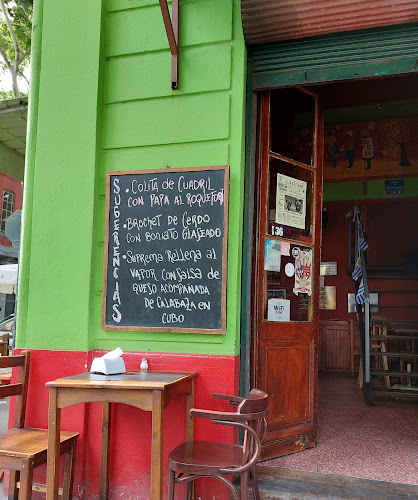 SUGERENCIAS
• COLITA de CUADRIL
CON PAPA AL ROQUEFORT
• BROCHET DE CERDO
CON BONIATO GLASEADO
• SUPREMA Rellena al
VAPOR CON SALSA de
QUESO ACOMPAÑADA
DE CALABAZA EN
CUBO
WiFi